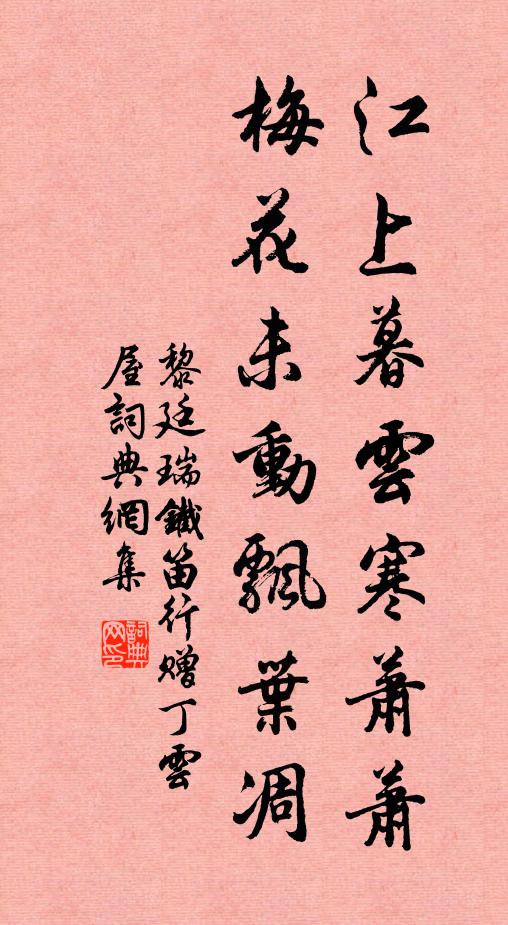 江上暮雲寒蕭蕭
梅花未動飄葉凋
黎廷瑞鐵笛行贈丁雲
屋詞典網集
詞典
网印